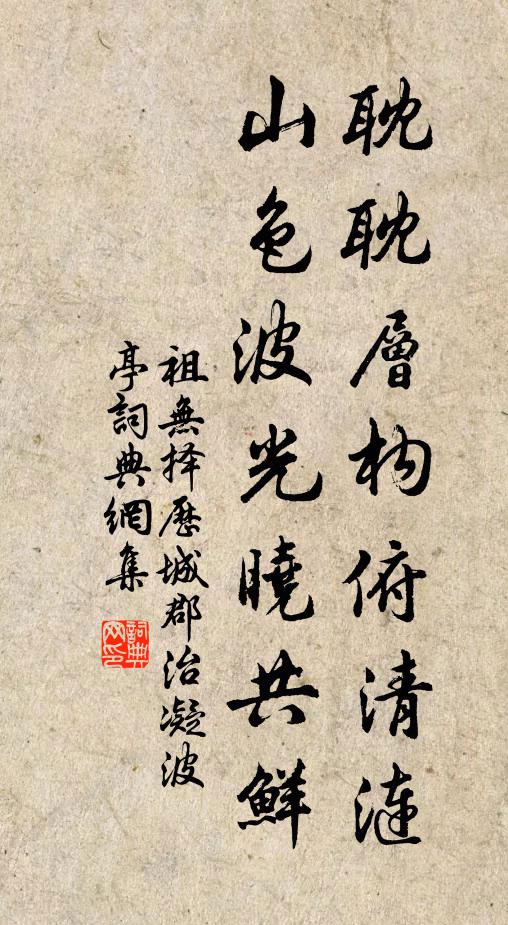 耽耽層构俯清漣
山色波光曉共鮮
祖無择歷城郡治凝波
亭詞典網集
詞典
网印